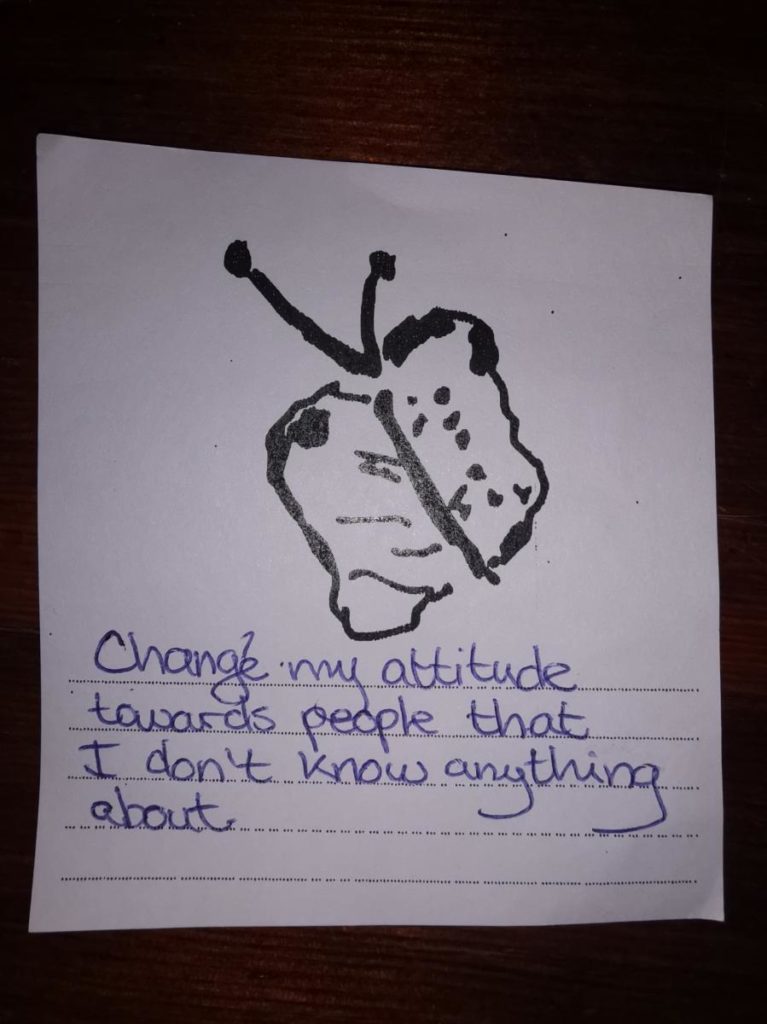 Change my attitude
towards people that
I don't know anything
about.